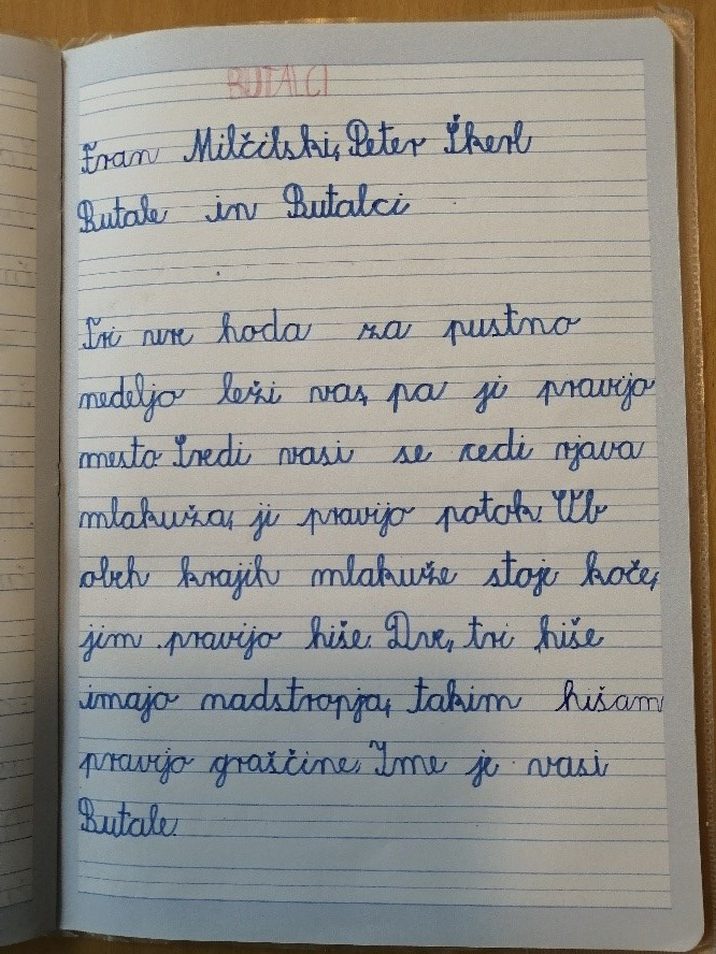 BUTALCI
Fran Milčilski, Peter Škerl
Butale in Butalci
Tri ure hoda za pustno
nedeljo leži vas, pa ji pravijo
mesto. Sredi vasi se cedi rjava
mlakuža, ji pravijo potok. Ob
obeh krajih mlakuže stoje koče,
jim pravijo hiše. Dve, tri hiše
imajo nadstropja, takim hišam
pravijo graščine. Ime je vasi
Butale.